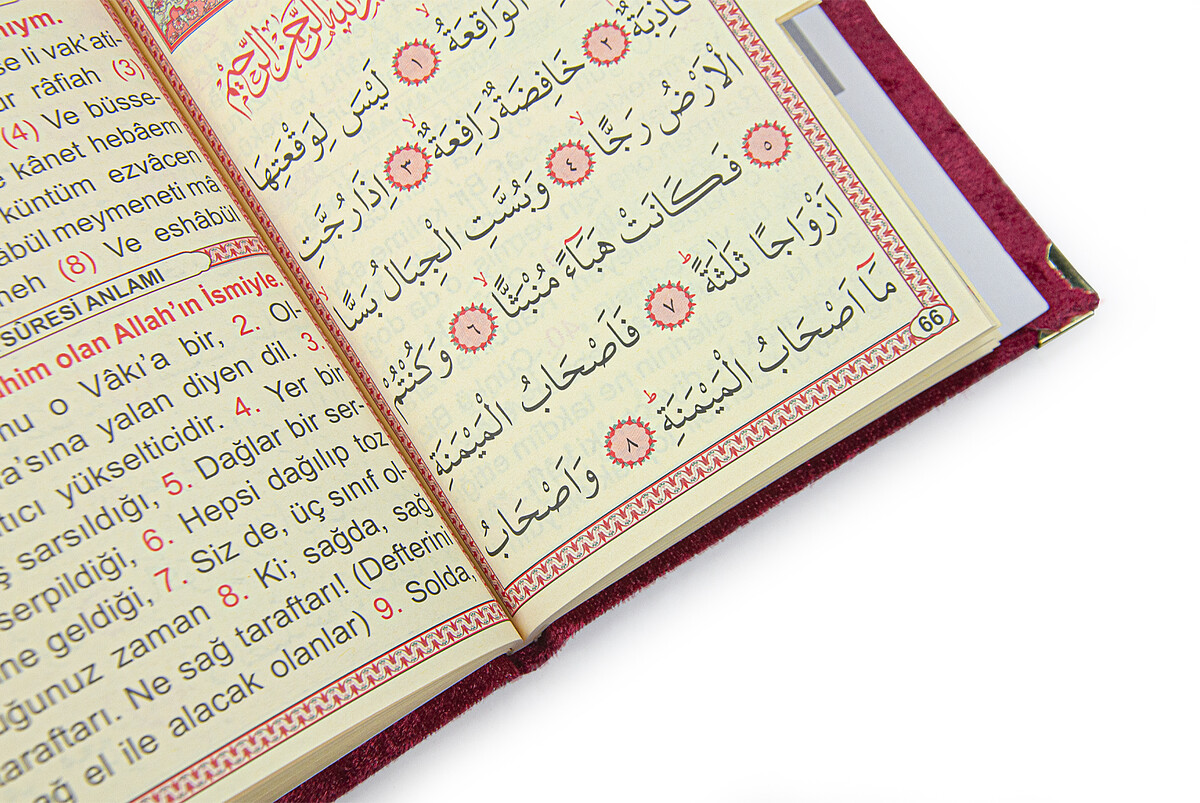 se li vak'ati-
râfiah (3)
(4) Ve büsse-
kânet hebâem
küntüm ezvâcen
meymeneti mâ
(8) Ve eshâbül
SÛRESİ ANLAMI
olan Allah'ın İsmiyle.
o Vâkı'a bir, 2. Ol-
yalan diyen dil. 3.
yükselticidir. 4. Yer bir
sarsıldığı, 5. Dağlar bir ser-
6. Hepsi dağılıp toz
geldiği, 7. Siz de, üç sınıf ol-
zaman 8. Ki; sağda, sağ
taraftarı. Ne sağ taraftarı! (Defterini
el ile alacak olanlar) 9. Solda,
الرَّحْمٰنِ الرَّحِيمِ
الْوَاقِعَةُ ١ لَيْسَ لِوَقْعَتِهَا
كَاذِبَةٌ ٢ خَافِضَةٌ رَافِعَةٌ ٣ اِذَا رُجَّتِ
الْاَرْضُ رَجًّا ٤ وَبُسَّتِ الْجِبَالُ بَسًّا
٥ فَكَانَتْ هَبَٓاءً مُنْبَثًّا ٦ وَكُنْتُمْ
اَزْوَاجًا ثَلٰثَةً ٧ فَاَصْحَابُ الْمَيْمَنَةِ
مَٓا اَصْحَابُ الْمَيْمَنَةِ ٨ وَاَصْحَابُ
66